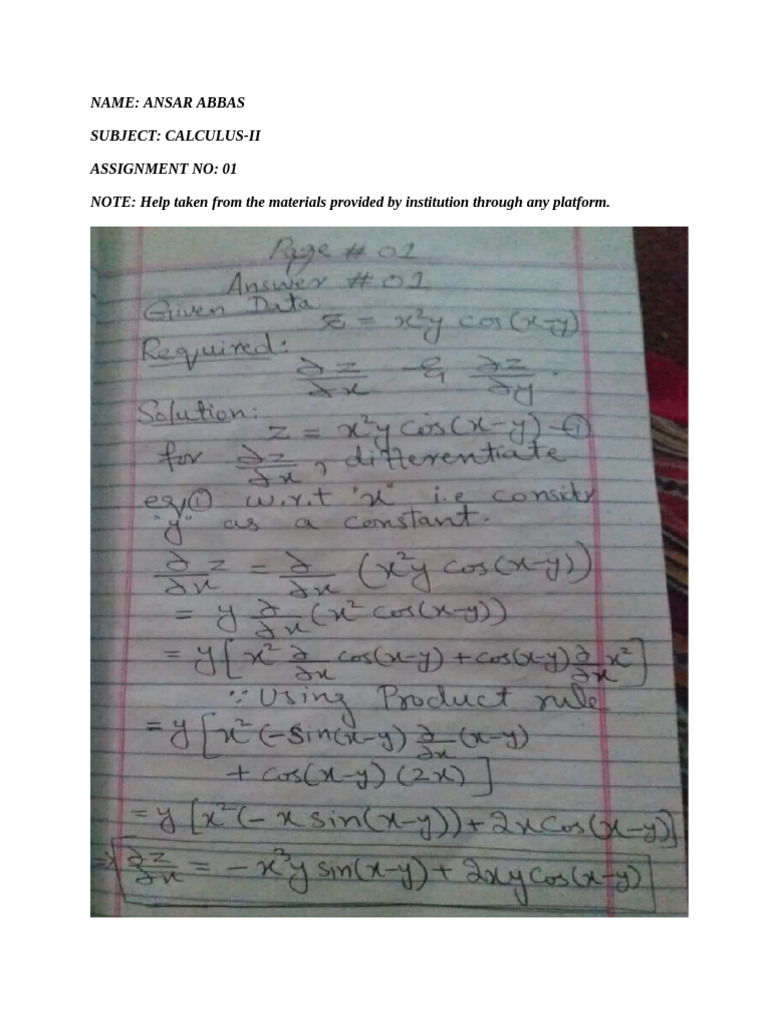 NAME: ANSAR ABBAS
SUBJECT: CALCULUS-II
ASSIGNMENT NO: 01
NOTE: Help taken from the materials provided by institution through any platform.
Page # 01
Answer # 01
Given Data:
z = x²y cos(x-y)
Required:
∂z/∂x & ∂z/∂y .
Solution:
z = x²y cos(x-y) -①
for ∂z/∂x, differentiate
eq① w.r.t "x" i.e considr
"y" as a constant.
∂/∂x z = ∂/∂x (x²y cos(x-y))
= y ∂/∂x (x² cos(x-y))
= y[x² ∂/∂x cos(x-y) + cos(x-y) ∂/∂x x²]
∵ Using Product rule
= y[x² (-sin(x-y) ∂/∂x (x-y)
+ cos(x-y) (2x)]
= y[x²(-x sin(x-y)) + 2x cos(x-y)]
⇒ ∂z/∂x = -x³y sin(x-y) + 2xy cos(x-y)